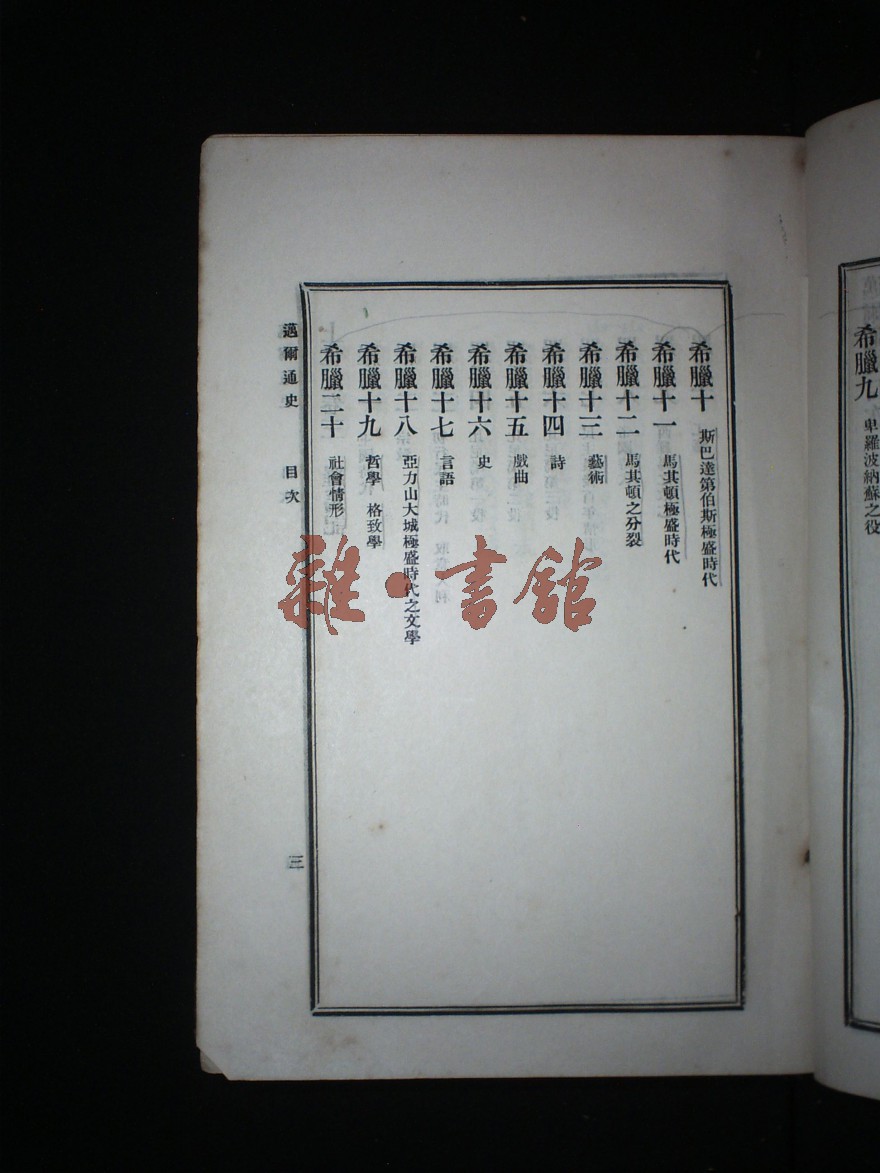 希臘九 卑羅波納蘇之役
希臘十 斯巴達第伯斯極盛時代
希臘十一 馬其頓極盛時代
希臘十二 馬其頓之分裂
希臘十三 藝術
希臘十四 詩
希臘十五 戲曲
希臘十六 史
希臘十七 言語
希臘十八 亞力山大城極盛時代之文學
希臘十九 哲學 格致學
希臘二十 社會情形
邁爾通史 目次 三
雜·書館